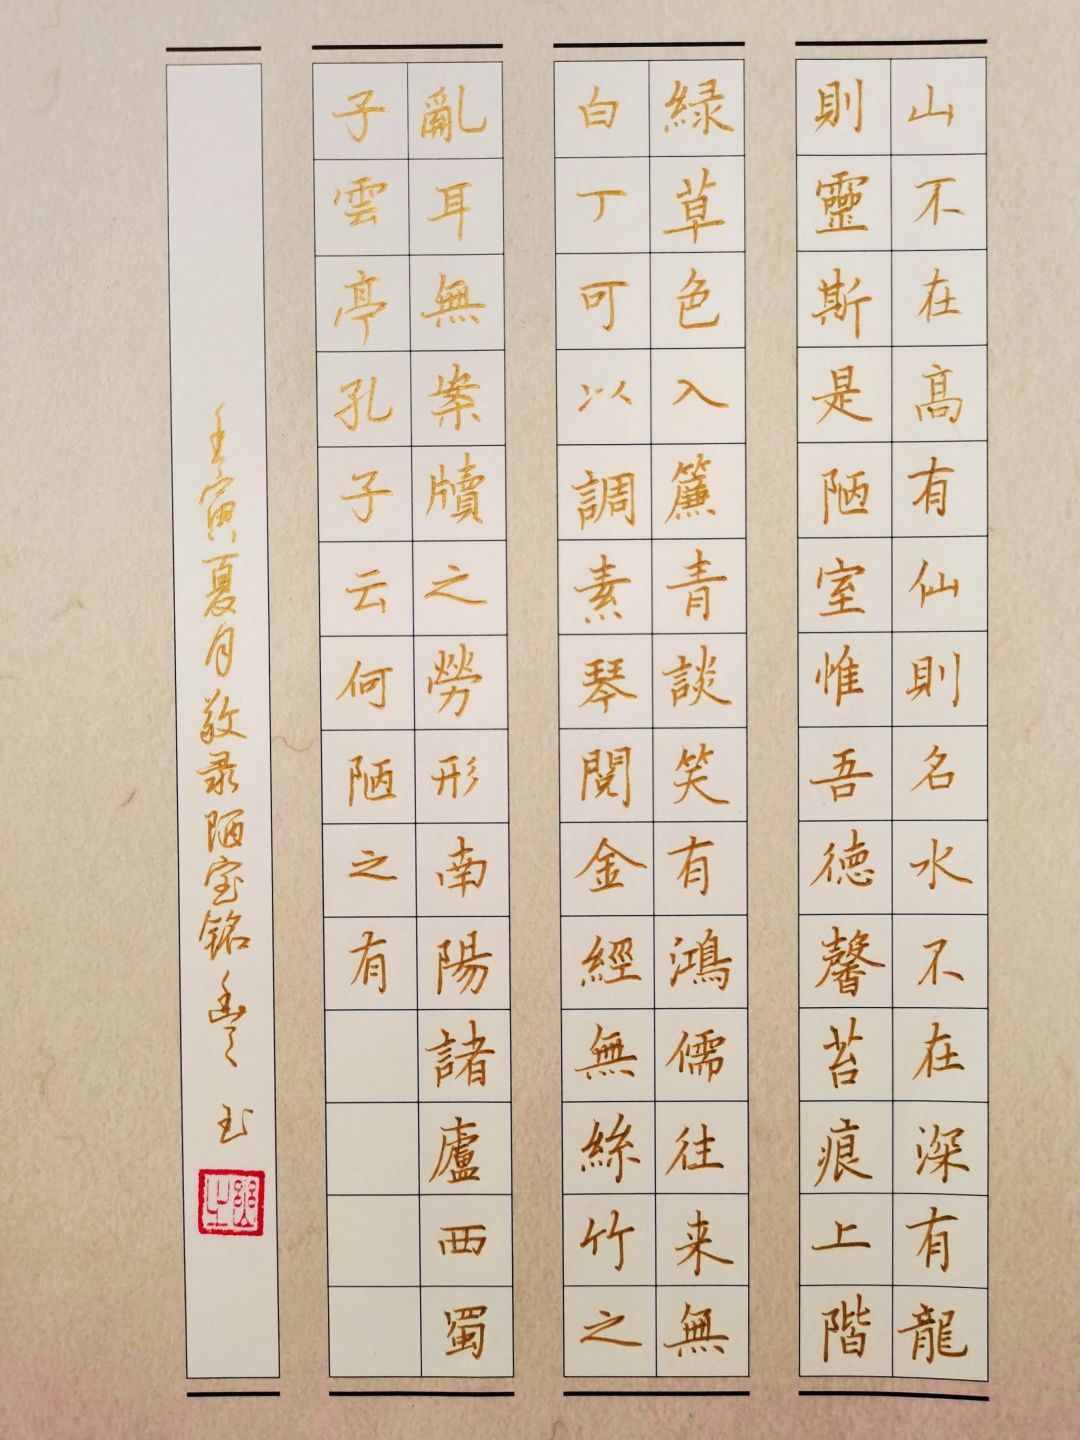 山不在高有仙則名水不在深有龍
則靈斯是陋室惟吾德馨苔痕上階
緑草色入簾青談笑有鴻儒往来無
白丁可以調素琴閱金經無絲竹之
亂耳無案牘之勞形南陽諸廬西蜀
子雲亭孔子云何陋之有
壬寅夏月敬录陋室铭